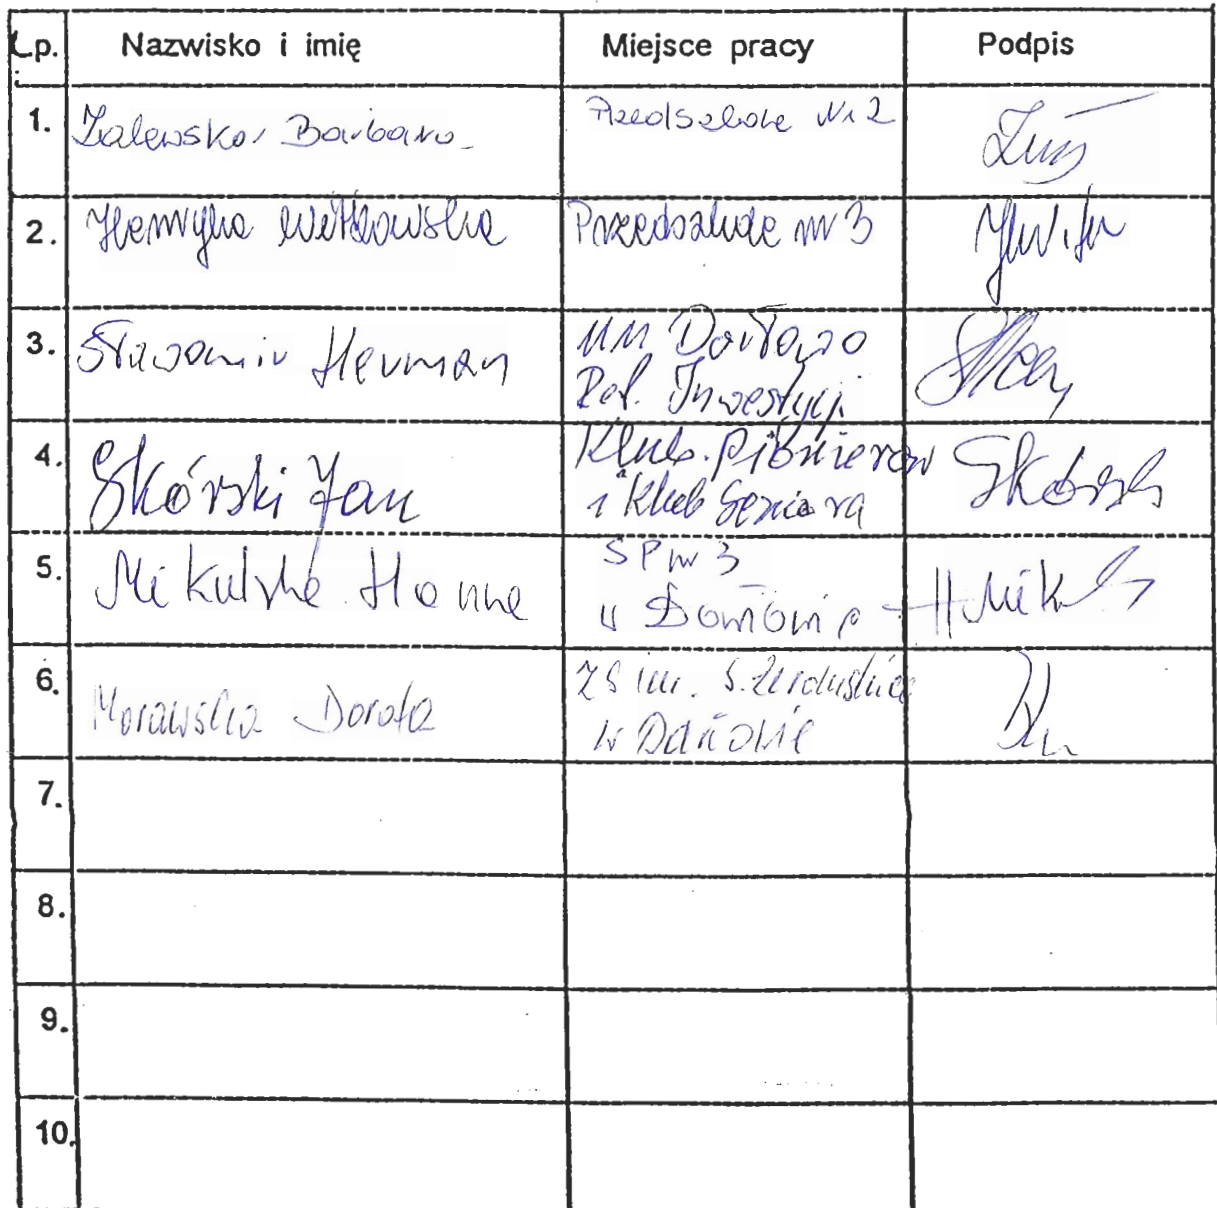 Lp. Nazwisko i imię Miejsce pracy Podpis
1. Zalewska Barbara Przedszkole Nr 2
2. Henryka Witkowska Przedszkole nr 3
3. Sławomir Herman UM Darłowo
Ref. Inwestycji
4. Skórski Jan Klub Pionierów Skórski
i Klub Seniora
5. Mikulska Hanna SP nr 3
H Mik
6. Morawska Dorota ZS im. S. Żeromskiego
7.
8.
9.
10.